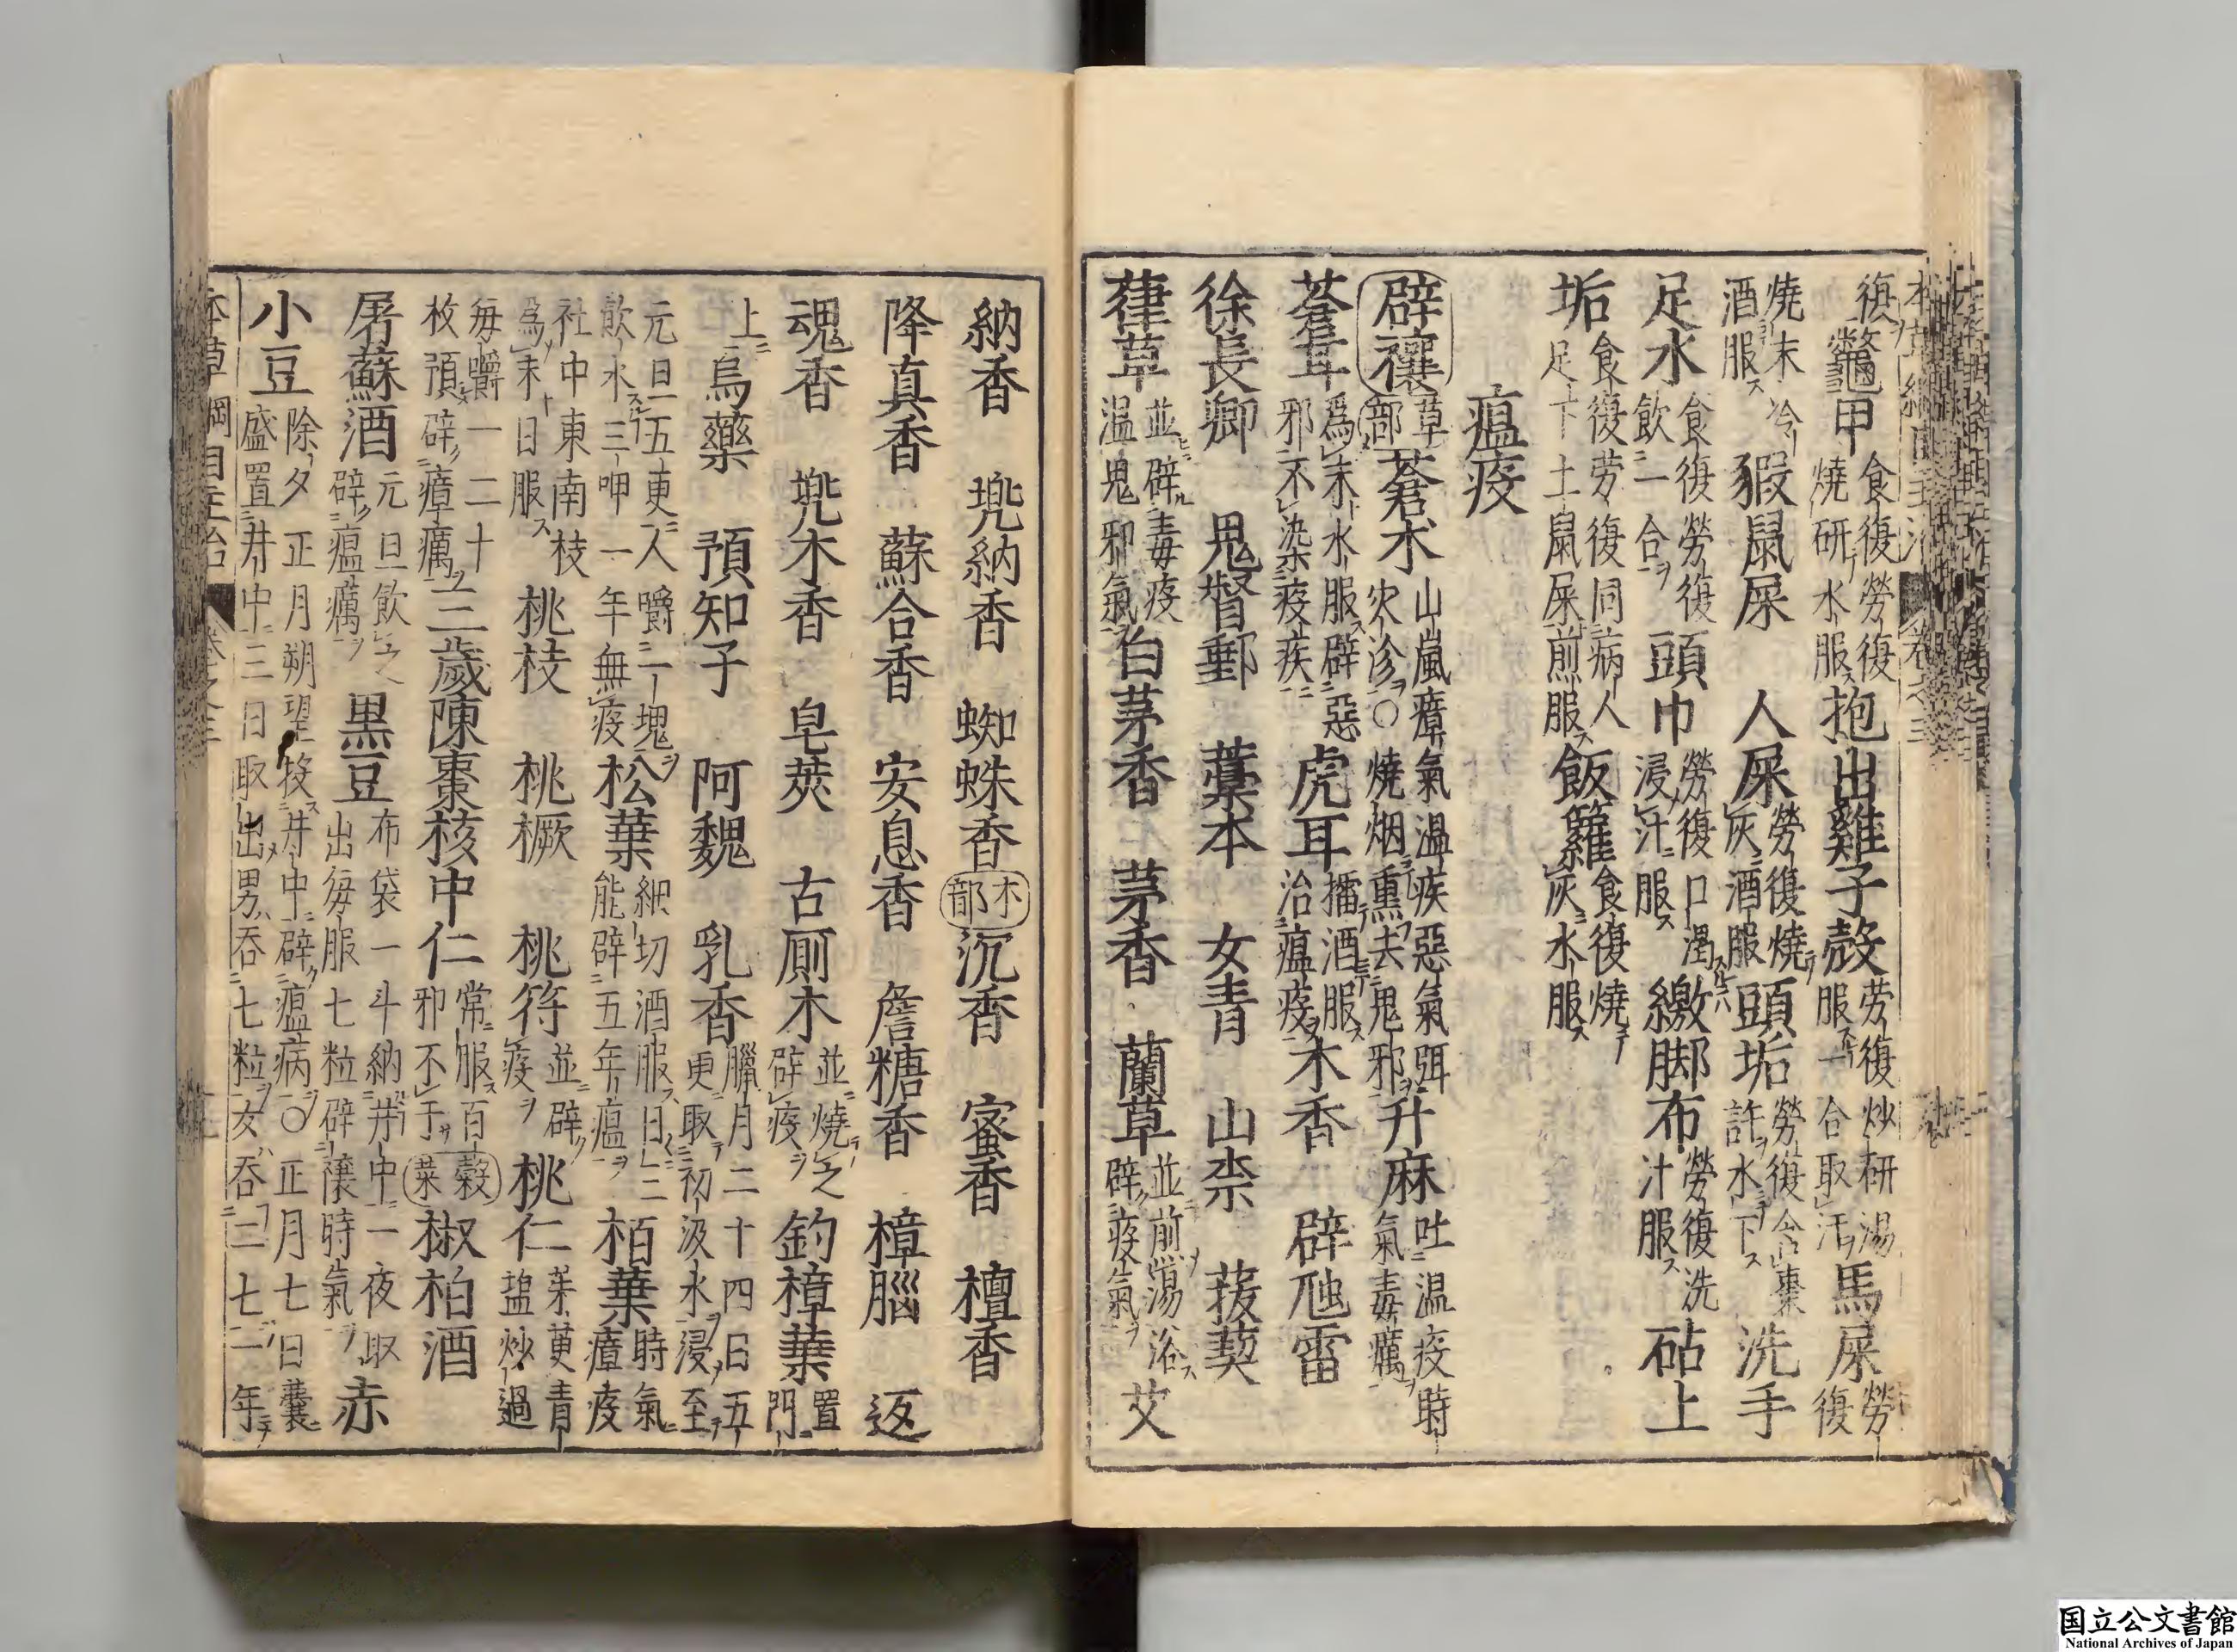 復鼈甲食復勞復燒研水服抱出雞子殼勞復炒研湯服一合取汗馬屎勞復
燒末冷酒服豭鼠屎人屎勞復燒灰酒服頭垢勞復含棗許水下洗手
足水食復勞復飲一合頭巾勞復口渴浸汁服繳脚布勞復洗汁服砧上
垢食復勞復同病人足下土鼠屎煎服飯籮食復燒灰水服
瘟疫
辟禳草部蒼术山嵐瘴氣温疾惡氣弭灾沴○燒烟熏去鬼邪升麻吐温疫時氣毒癘
蒼耳爲末水服辟惡邪不染疫疾虎耳擂酒服治瘟疫木香辟虺雷
徐長卿鬼督郵藁本女青山柰菝葜
葎草並辟毒疫温鬼邪氣白茅香茅香蘭草並煎湯浴辟疫氣艾
納香兠納香蜘蛛香木部沉香蜜香檀香
降真香蘇合香安息香詹糖香樟腦返
魂香兠木香皂莢古厠木並燒之辟疫釣樟葉置門
上烏藥預知子阿魏乳香臘月二十四日五更取初汲水浸至
元旦五更人嚼一塊飲水三呷一年無疫松葉細切酒服日二能辟五年瘟栢葉時氣瘴疫
社中東南枝爲末日服桃枝桃橛桃符並辟疫桃仁茱萸青鹽炒過
每嚼一二十枚預辟瘴癘三歲陳棗核中仁常服百邪不干穀菜椒柏酒
屠蘇酒元旦飲之辟瘟癘黒豆布袋一斗納井中一夜取出每服七粒辟禳時氣赤
小豆除夕正月朔望投井中辟瘟病○正月七日囊盛置井中三日取出男吞七粒女吞二七一年
本草綱目主治